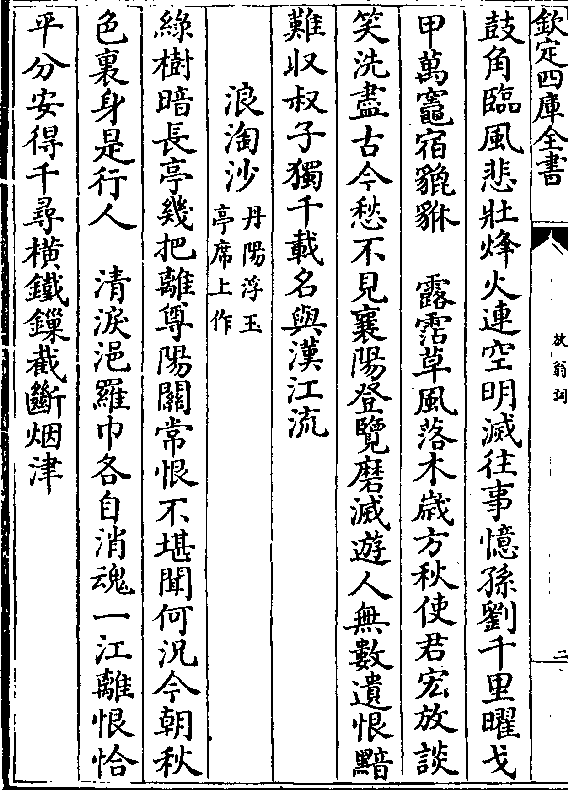 欽定四庫全書
放翁詞
二
鼓角臨風悲壯烽火連空明滅往事憶孫劉千里曜戈
甲萬竈宿貔貅　露霑草風落木歳方秋使君宏放談
笑洗盡古今愁不見襄陽登覽磨滅遊人無數遺恨黯
難収叔子獨千載名與漢江流
浪淘沙
丹陽浮玉
亭席上作
綠樹暗長亭幾把離尊陽關常恨不堪聞何況今朝秋
色裏身是行人　清淚浥羅巾各自消魂一江離恨恰
平分安得千尋橫鐵鏁截斷烟津